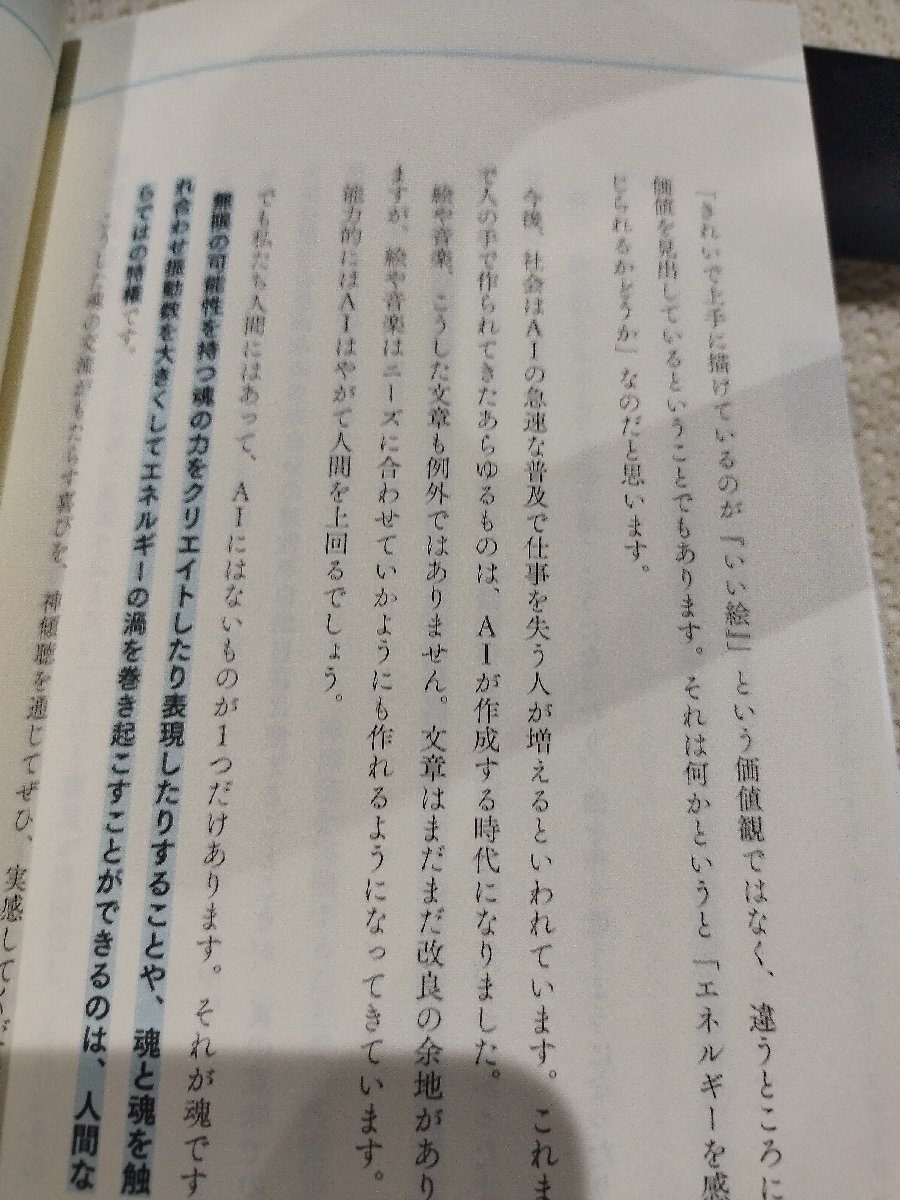 「きれいで上手に描けているのが『いい絵』」という価値観ではなく、違うところに
価値を見出しているということでもあります。それは何かというと「エネルギーを感
じられるかどうか」なのだと思います。
今後、社会はAIの急速な普及で仕事を失う人が増えるといわれています。これま
で人の手で作られてきたあらゆるものは、AIが作成する時代になりました。
絵や音楽、こうした文章も例外ではありません。文章はまだまだ改良の余地があり
ますが、絵や音楽はニーズに合わせていかようにも作れるようになってきています。
能力的にはAIはやがて人間を上回るでしょう。
でも私たち人間にはあって、AIにはないものが1つだけあります。それが魂です
無限の可能性を持つ魂の力をクリエイトしたり表現したりすることや、魂と魂を触
れ合わせ振動数を大きくしてエネルギーの渦を巻き起こすことができるのは、人間な
らではの特権です。
魂の交流がもたらす喜びを、神傾聴を通じてぜひ、実感して